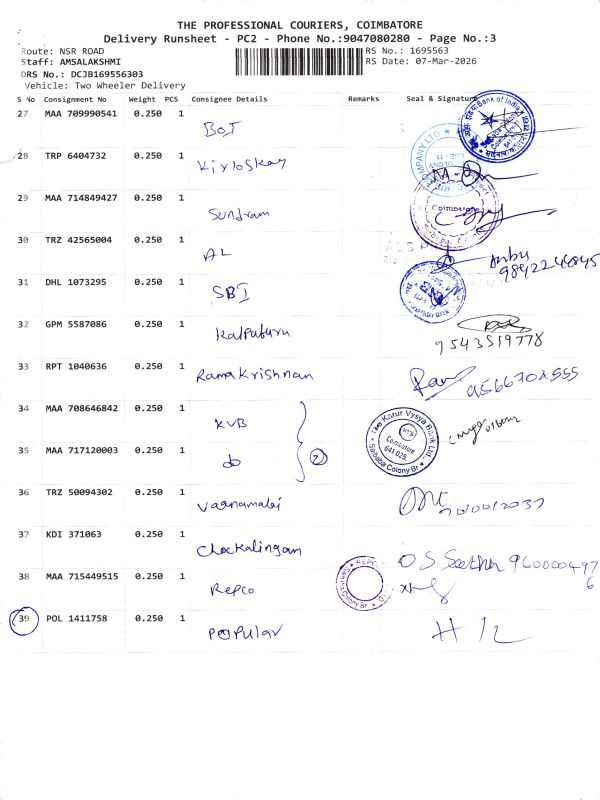 THE PROFESSIONAL COURIERS, COIMBATORE
Delivery Runsheet - PC2 - Phone No.:9047080280 - Page No.:3
Route: NSR ROAD RS No.: 1695563
Staff: AMSALAKSHMI RS Date: 07-Mar-2026
DRS No.: DCJB169556303
Vehicle: Two Wheeler Delivery
S No Consignment No Weight PCS Consignee Details Remarks Seal & Signature
27 MAA 709990541 0.250 1 BOI Bank of India
28 TRP 6404732 0.250 1 Kirloskar
29 MAA 714849427 0.250 1 Sundram Coimbatore
30 TRZ 42565004 0.250 1 AL Anbu
31 DHL 1073295 0.250 1 SBI
32 GPM 5587086 0.250 1 9543519778
33 RPT 1040636 0.250 1 Rama Krishnan
34 MAA 708646842 0.250 1 KVB The Karur Vysya Bank Ltd.
35 MAA 717120003 0.250 1 do 2 Coimbatore 641 025. Saibaba Colony Br
36 TRZ 50094302 0.250 1 Varnamalai
37 KDI 371063 0.250 1 Chockalingam
38 MAA 715449515 0.250 1 Repco REPCO
39 POL 1411758 0.250 1 POPULAR